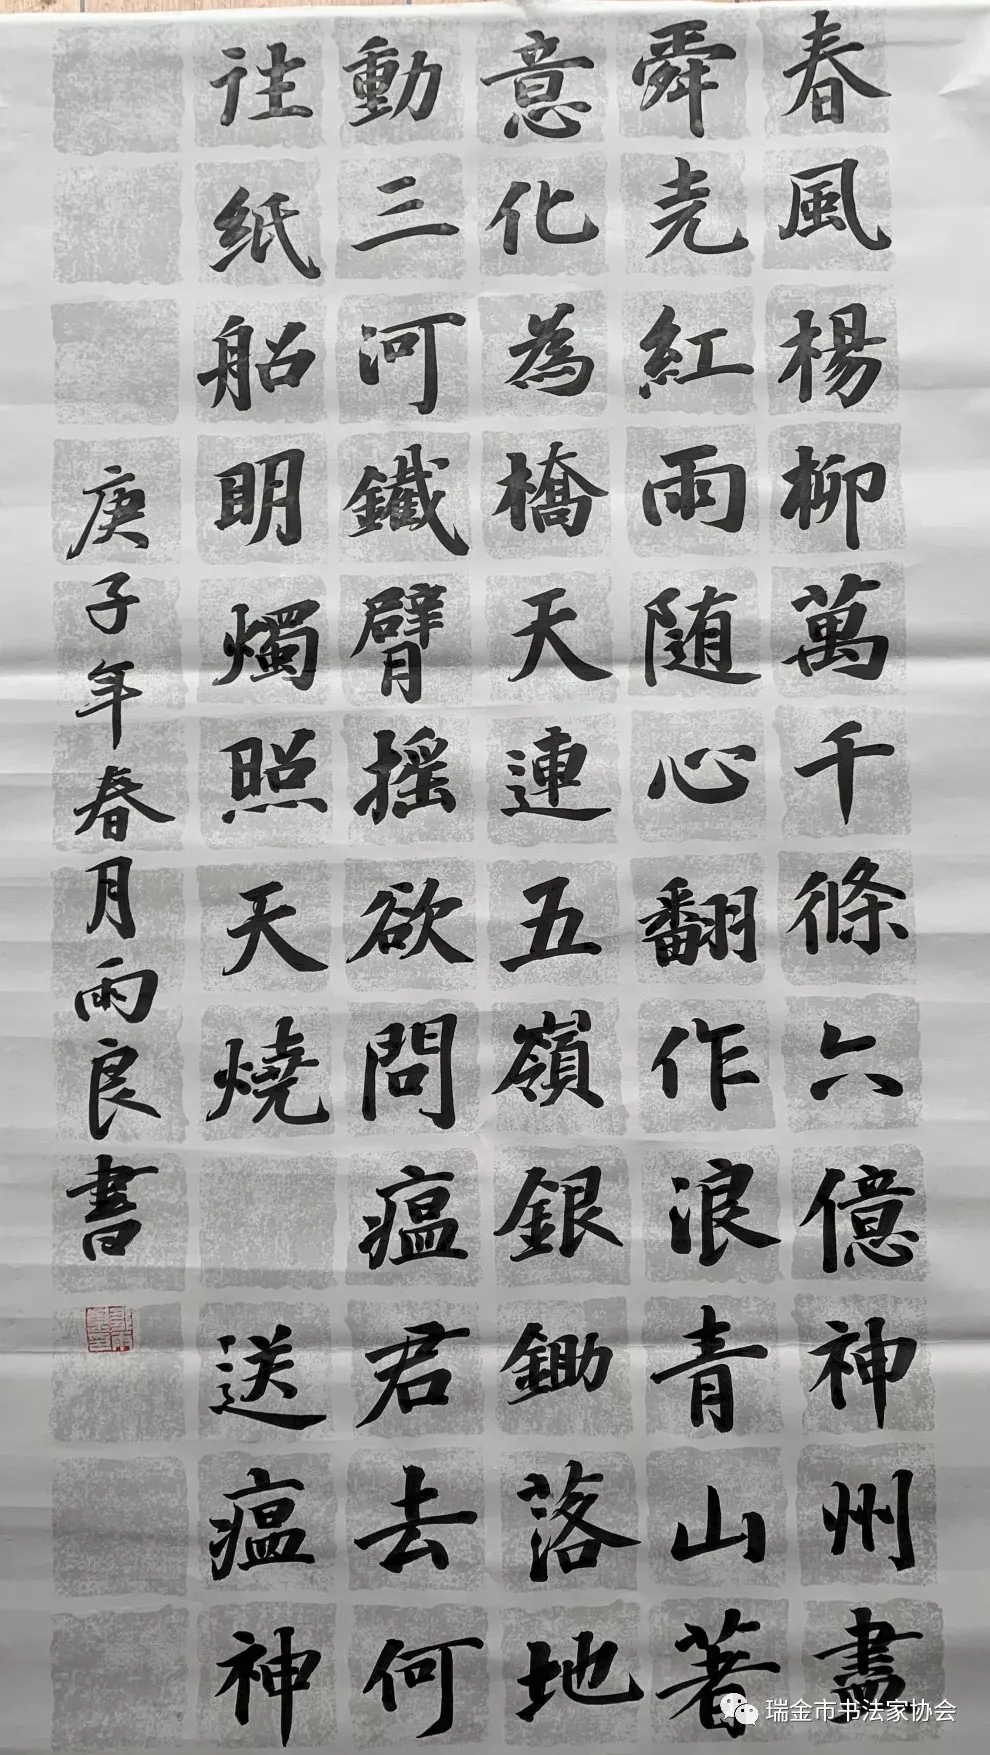 春風楊柳萬千條六億神州盡
舜尧紅雨随心翻作浪青山著
意化為橋天連五嶺銀鋤落地
動三河鐵臂摇欲問瘟君去何
往纸船明燭照天燒 送瘟神
庚子年春月雨良書
瑞金市书法家协会